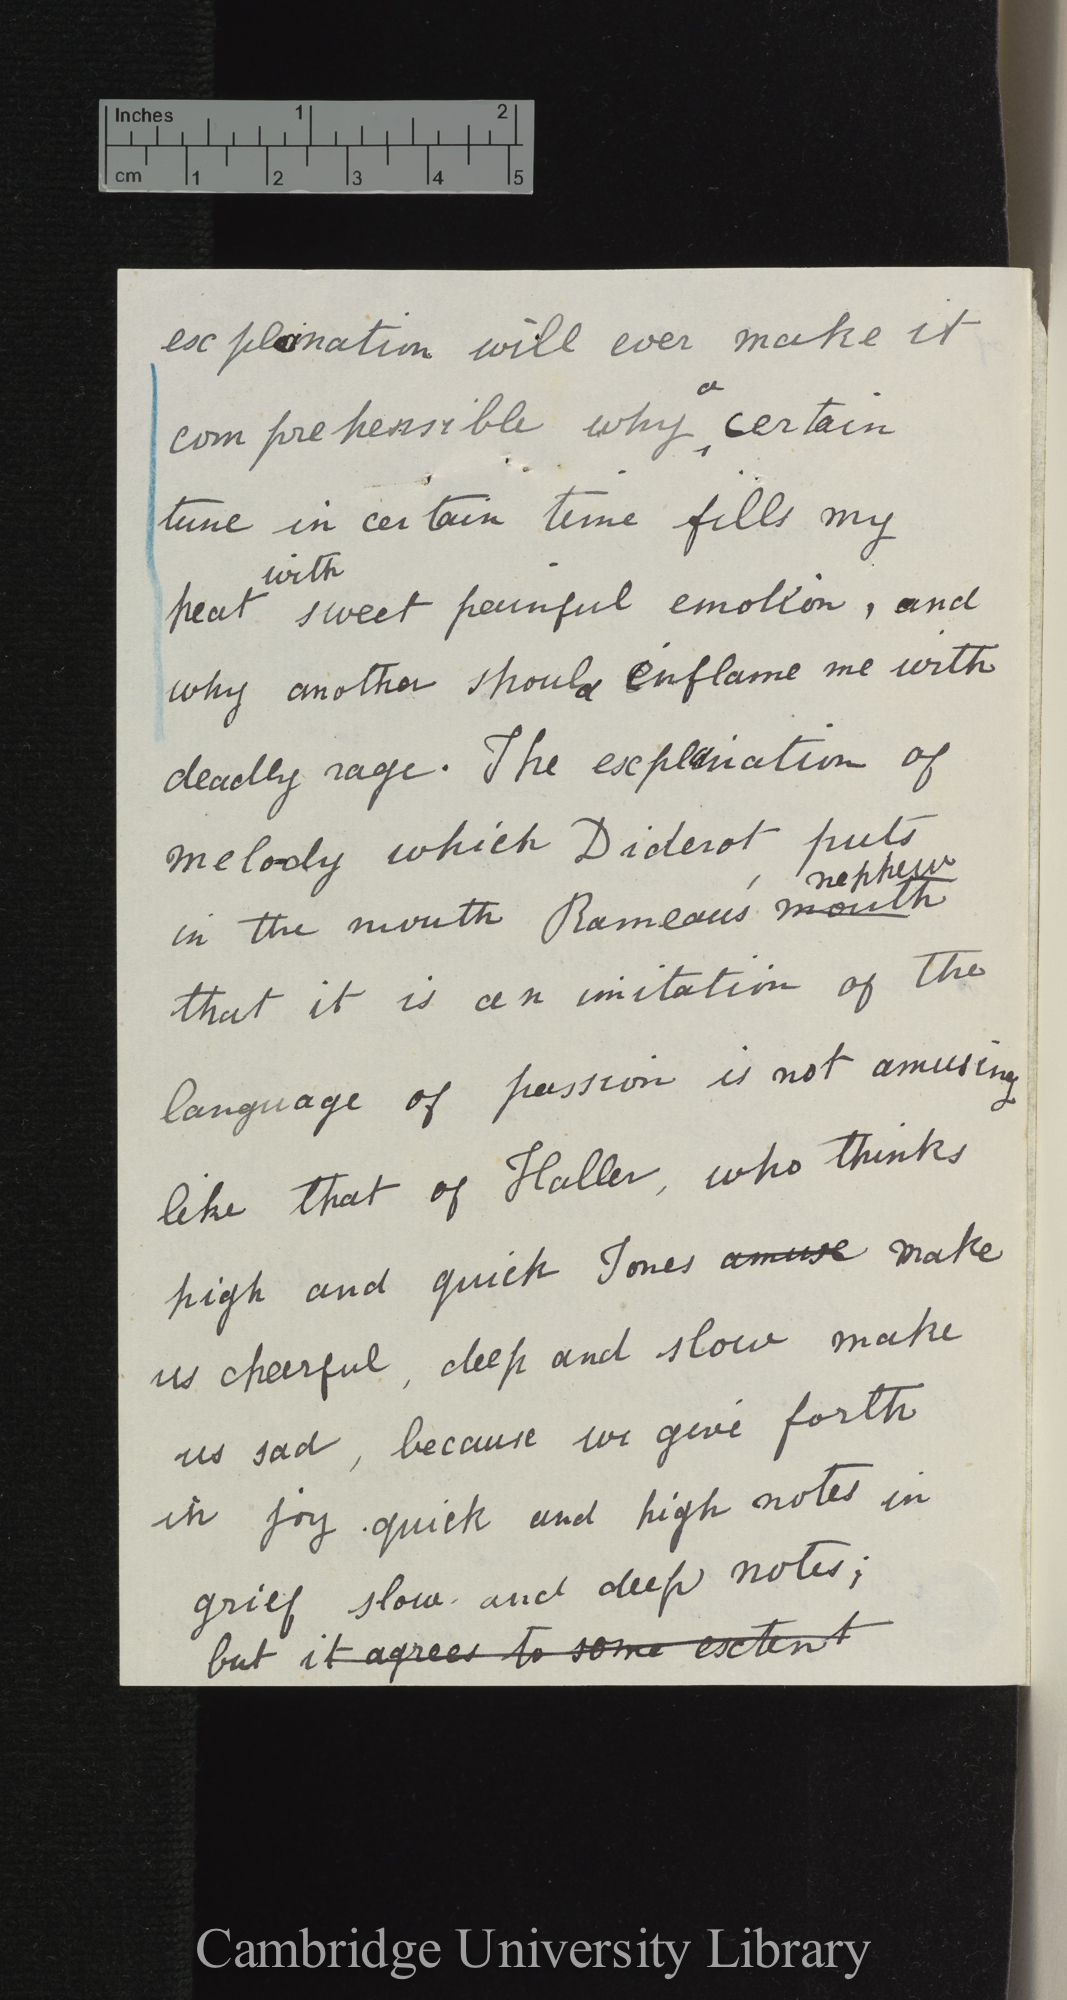 Inches 1 2
cm 1 2 3 4 5
explanation will ever make it
a
comprehensible why certain
tune in certain time fills my
with
heat sweet painful emotion, and
why another should inflame me with
deadly rage. The explanation of
melody which Diderot puts
nephew
in the mouth Rameau's mouth
that it is an imitation of the
language of passion is not amusing
like that of Haller, who thinks
high and quick Tones amuse make
us cheerful, deep and slow make
us sad, because we give forth
in joy quick and high notes in
grief slow and deep notes;
but it agrees to some extent
Cambridge University Library